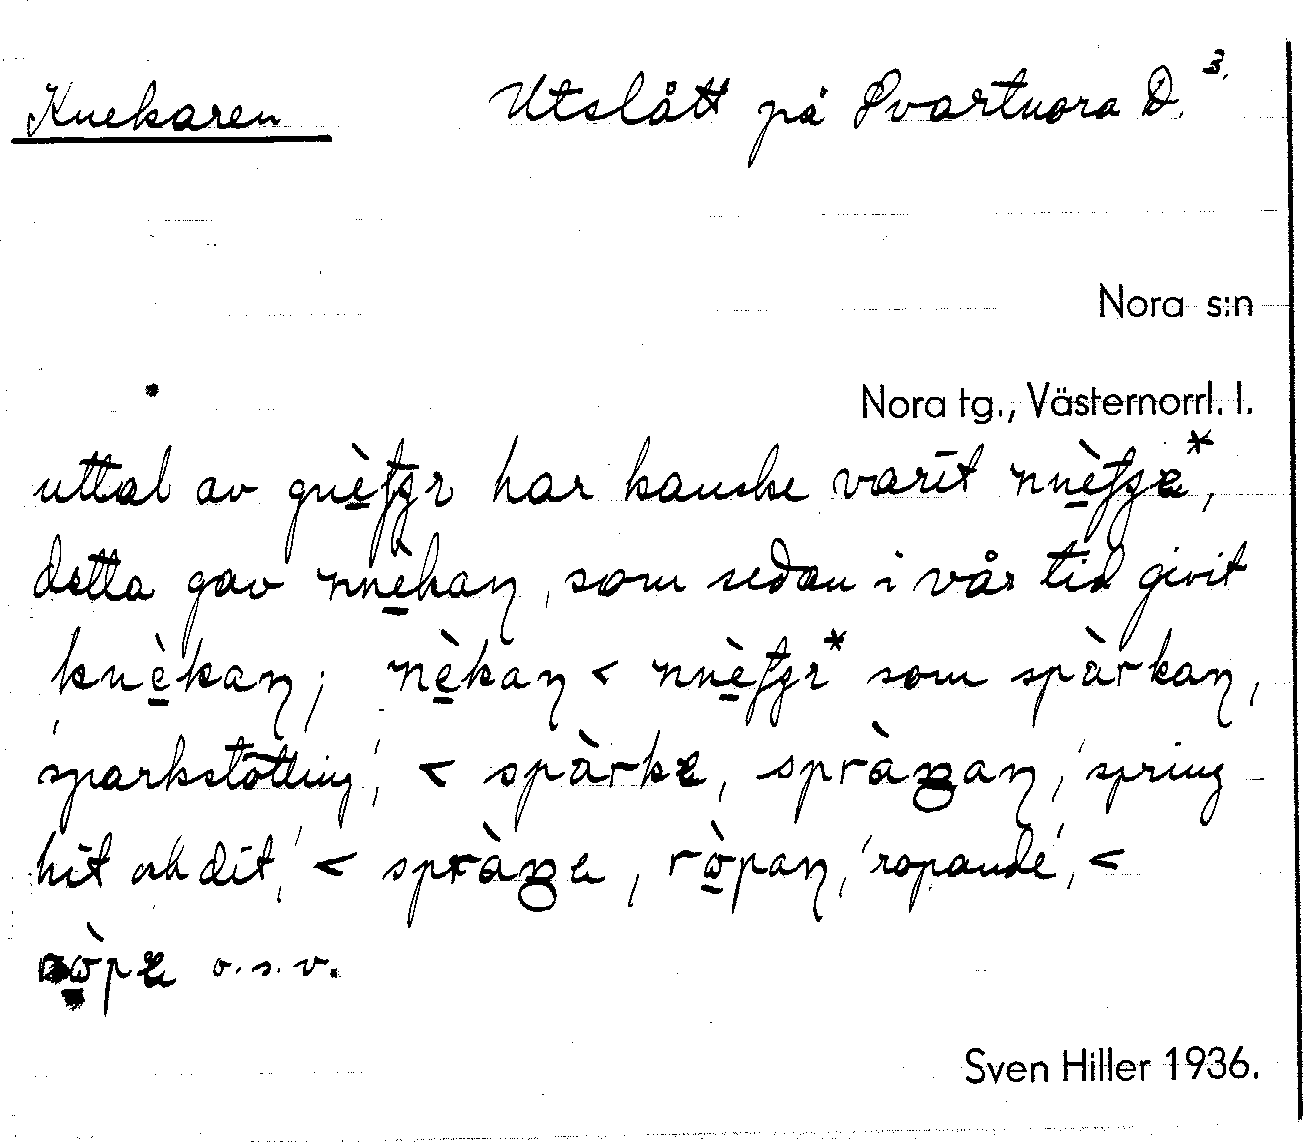 Knekaren Utslått på Svartnora D. 3.
Nora s:n
Nora tg., Västernorrl. l.
uttal av har kanske varit
detta gav nnèkaŋ, som sedan i vår tid givit
knèkaŋ; nèkaŋ < som spàrkaŋ,
'sparkstötting', < spàrkɐ, 'spring
hit och dit', < , ròpaŋ, 'ropande', <
ròpɐ o.s.v.
Sven Hiller 1936.